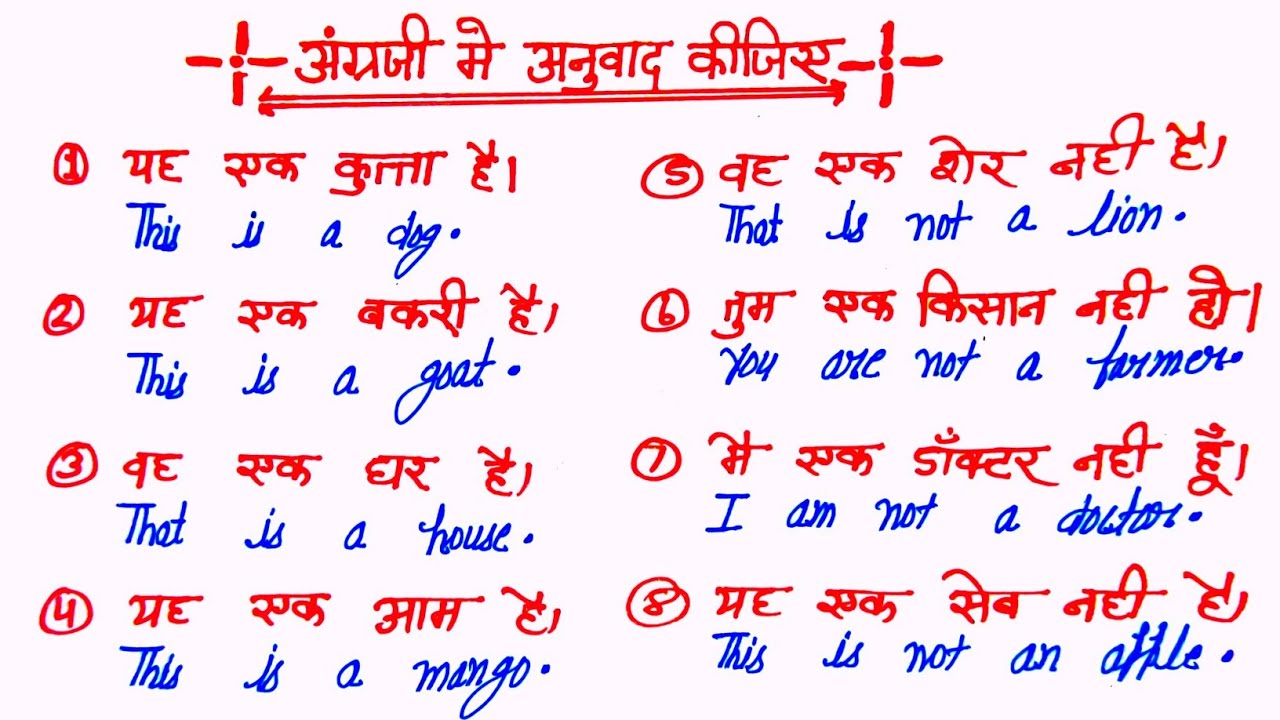 अंग्रजी मे अनुवाद कीजिए
① यह एक कुत्ता है।
This is a dog.
② यह एक बकरी है।
This is a goat.
③ वह एक घर है।
That is a house.
④ यह एक आम है।
This is a mango.
⑤ वह एक शेर नही है।
That is not a lion.
⑥ तुम एक किसान नही हो।
You are not a farmer.
⑦ मै एक डाँक्टर नही हूँ।
I am not a doctor.
⑧ यह एक सेब नही है।
This is not an apple.